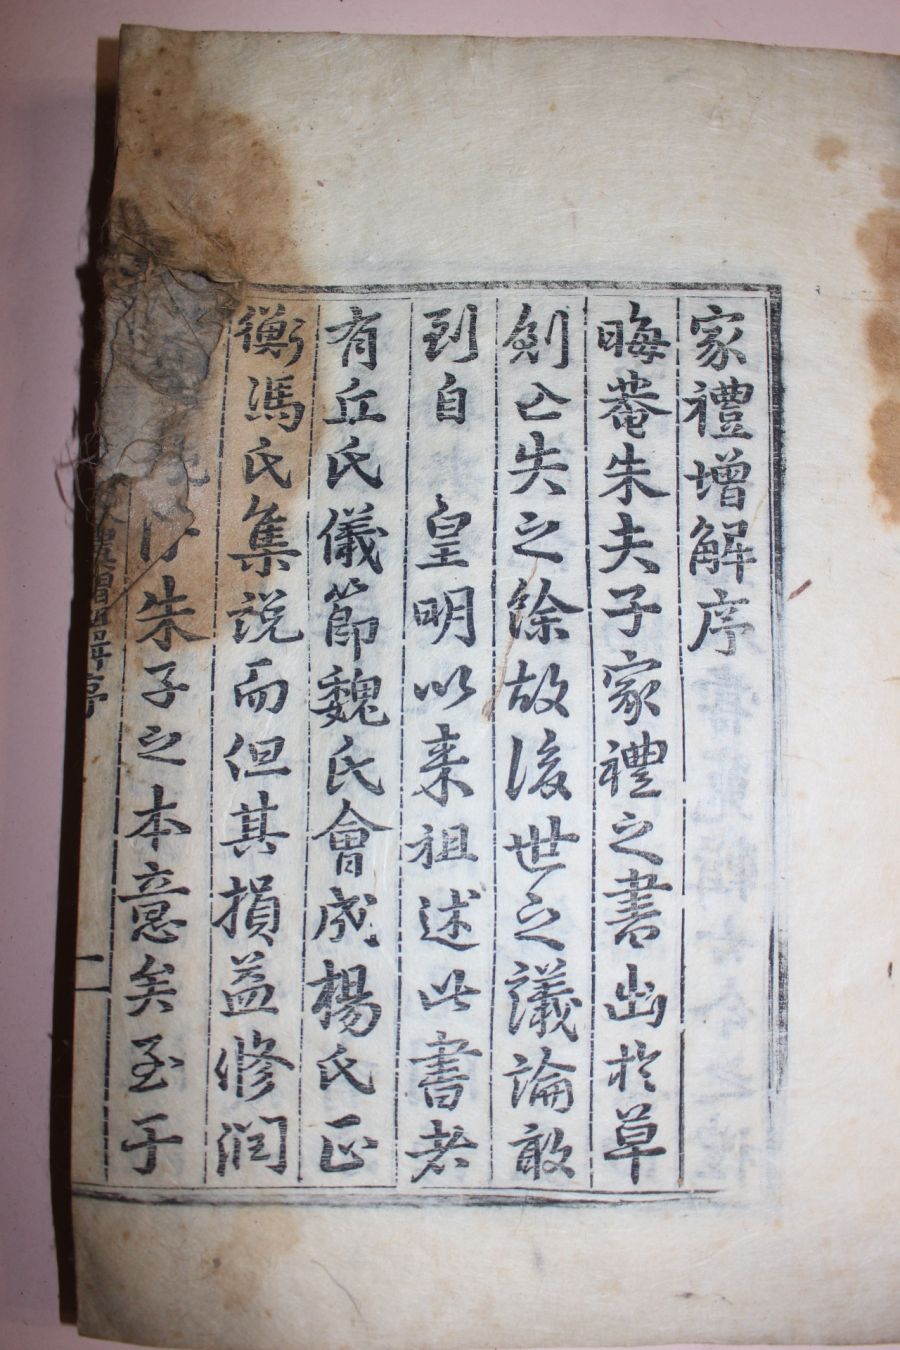 家禮增解序
晦菴朱夫子家禮之書出於草
創亡失之餘故後世之議論敢
到自 皇明以來祖述此書者
有丘氏儀節魏氏會成楊氏正
衡馮氏集說而但其損益修潤
朱子之本意矣至于
家禮增解序